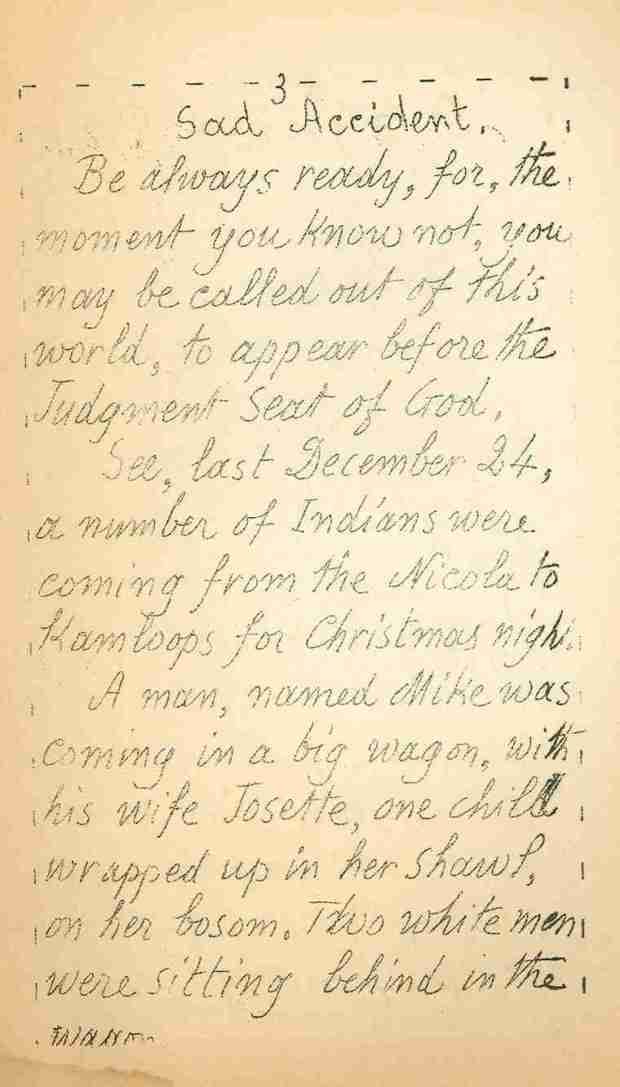 3
Sad Accident.
Be always ready, for, the
moment you Know not, you
may be called out of this
world, to appear before the
Judgment Seat of God.
See, last December 24,
a number of Indians were
coming from the Nicola to
Kamloops for Christmas night.
A man, named Mike was
coming in a big wagon, with
his wife Josette, one child
wrapped up in her shawl,
on her bosom. Two white men
were sitting behind in the
wagon